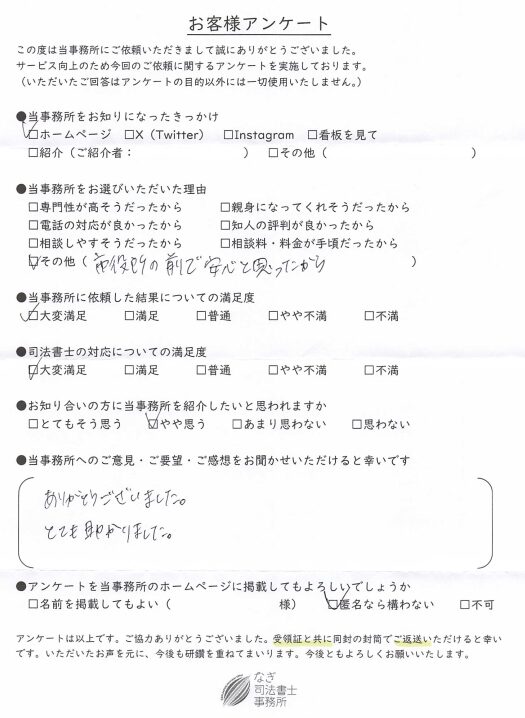 お客様アンケート
この度は当事務所にご依頼いただきまして誠にありがとうございました。
サービス向上のため今回のご依頼に関するアンケートを実施しております。
(いただいたご回答はアンケートの目的以外には一切使用いたしません。)
●当事務所をお知りになったきっかけ
☑ホームページ □X(Twitter) □Instagram □看板を見て
□紹介(ご紹介者: ) □その他( )
●当事務所をお選びいただいた理由
□専門性が高そうだったから □親身になってくれそうだったから
□電話の対応が良かったから □知人の評判が良かったから
□相談しやすそうだったから □相談料・料金が手頃だったから
☑その他(市役所の前で安心と思ったから )
●当事務所に依頼した結果についての満足度
☑大変満足 □満足 □普通 □やや不満 □不満
●司法書士の対応についての満足度
☑大変満足 □満足 □普通 □やや不満 □不満
●お知り合いの方に当事務所を紹介したいと思われますか
□とてもそう思う ☑やや思う □あまり思わない □思わない
●当事務所へのご意見・ご要望・ご感想をお聞かせいただけると幸いです
ありがとうございました。
とても助かりました。
●アンケートを当事務所のホームページに掲載してもよろしいでしょうか
□名前を掲載してもよい( 様) ☑匿名なら構わない □不可
アンケートは以上です。ご協力ありがとうございました。受領証と共に同封の封筒でご返送いただけると幸い
です。いただいたお声を元に、今後も研鑽を重ねてまいります。今後ともよろしくお願いいたします。
なぎ
司法書士
事務所